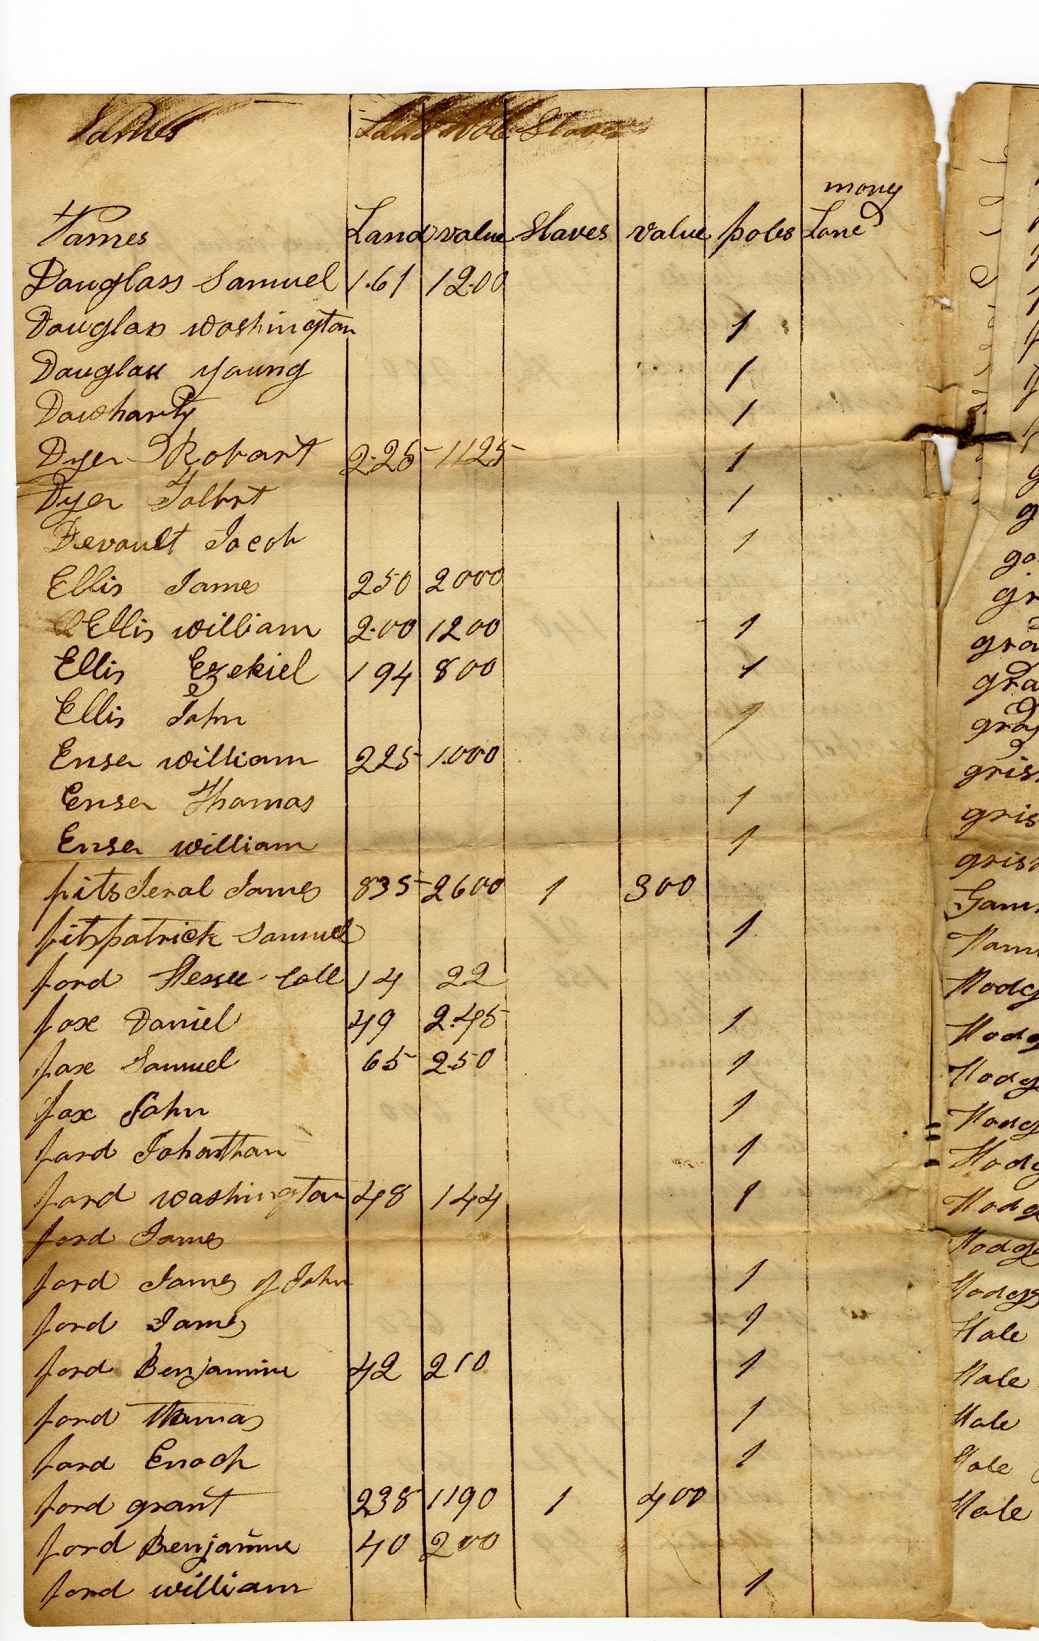 Names Land Vale Slaves
mony
Names Land value Slaves value poles Land
Dauglass Samuel 161 1200
Dauglas washington 1
Dauglass young 1
Dawharty 1
Dyer Robart 225 1125 1
Dyer Talbrt 1
Devault Jacob 1
Ellis James 250 2000
Ellis william 200 1200 1
Ellis Ezekiel 194 800 1
Ellis John 1
Enser william 225 1000
Enser Thomas 1
Enser william 1
fitsJeral James 835 2600 1 300
fitzpatrick Samuel 1
ford 14 22
fox Daniel 49 245 1
fox Samuel 65 250 1
fox John 1
ford Johnathan 1
ford washington 48 144 1
ford James
ford James of John 1
ford James 1
ford Benjamine 42 210 1
ford thomas 1
ford Enoch 1
ford grant 238 1190 1 400
ford Benjamine 40 200
ford william 1
g
go
gr
gra
gra
gra
gris
gris
gris
Ham
Hodg
Hodg
Hodg
Hodg
Hodg
Hodg
Hodg
Hodgs
Hale
Hale
Hale
Hale
Hale